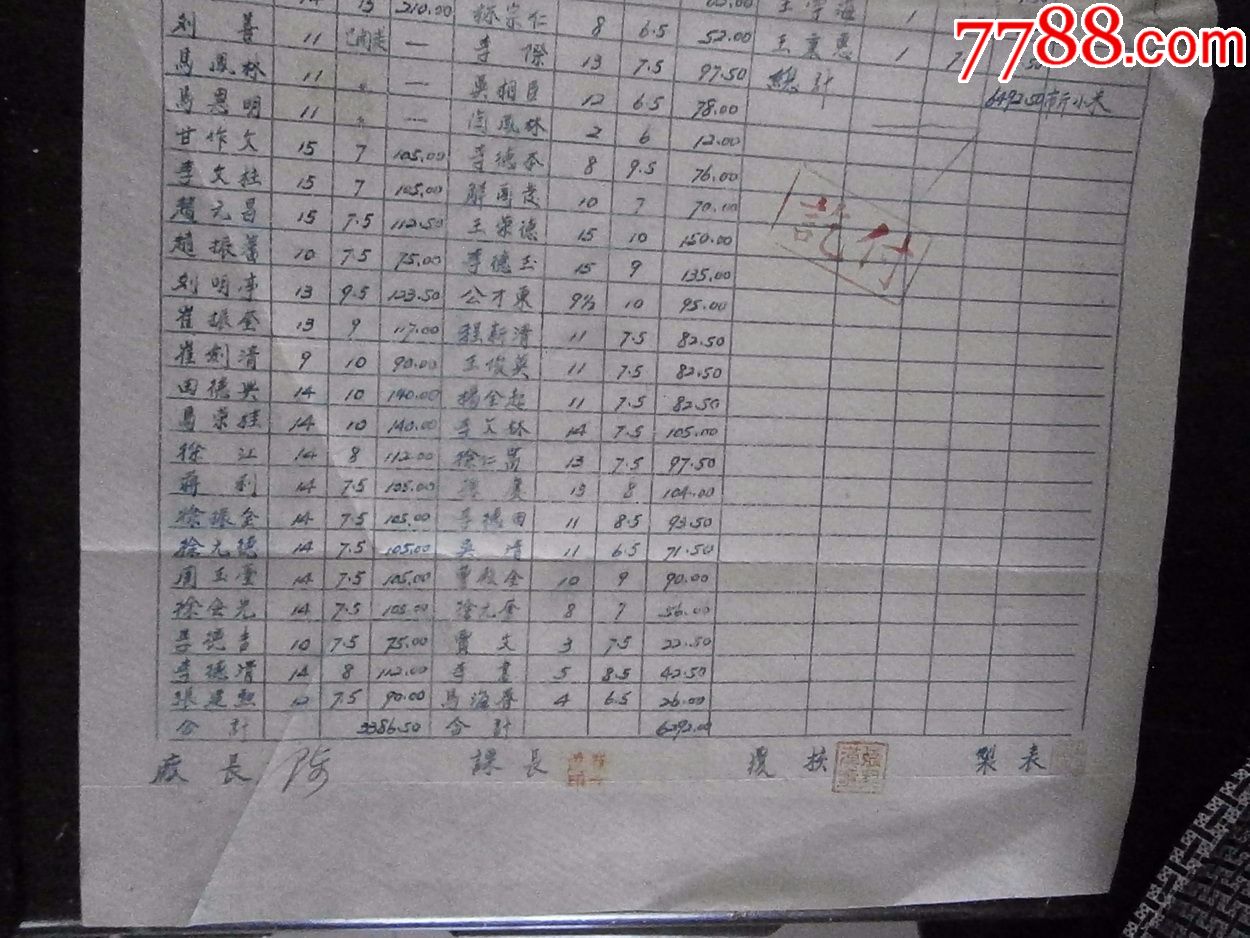 7788.com
14 13 210.00 孫宗仁
刘善 11 — 8 6.5 52.00 王
馬鳳林 11 — 李傑 13 7.5 97.50 總計
馬恩明 11 — 吳相臣 12 6.5 78.00 6492.50 市斤小米
甘作文 15 7 105.00 鳳林 2 6 12.00
李文柱 15 7 105.00 李德 8 9.5 76.00
趙元昌 15 7.5 112.50 解 10 7 70.00
趙振 10 7.5 75.00 王榮德 15 10 150.00
刘明亭 13 9.5 123.50 李德玉 15 9 135.00
崔振奎 13 9 117.00 公才東 9½ 10 95.00
崔劍清 9 10 90.00 程新清 11 7.5 82.50
田德興 14 10 140.00 王俊英 11 7.5 82.50
馬榮桂 14 10 140.00 楊金起 11 7.5 82.50
徐江 14 8 112.00 李文林 14 7.5 105.00
蔣利 14 7.5 105.00 徐仁 13 7.5 97.50
徐振金 14 7.5 105.00 慶 13 8 104.00
徐元德 14 7.5 105.00 李德田 11 8.5 93.50
周玉 14 7.5 105.00 吳清 11 6.5 71.50
徐金光 14 7.5 105.00 曹殿金 10 9 90.00
李德吉 10 7.5 75.00 徐元奎 8 7 56.00
李德清 14 8 112.00 賈文 3 7.5 22.50
張 12 7.5 90.00 李 5 8.5 42.50
合計 3386.50 馬海 4 6.5 26.00
合計 6292.00
付訖
廠長 課長 覆核 製表